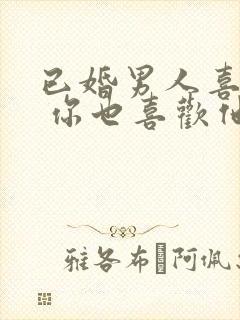 已婚男人喜
你也喜歡他
雅各布 阿佩